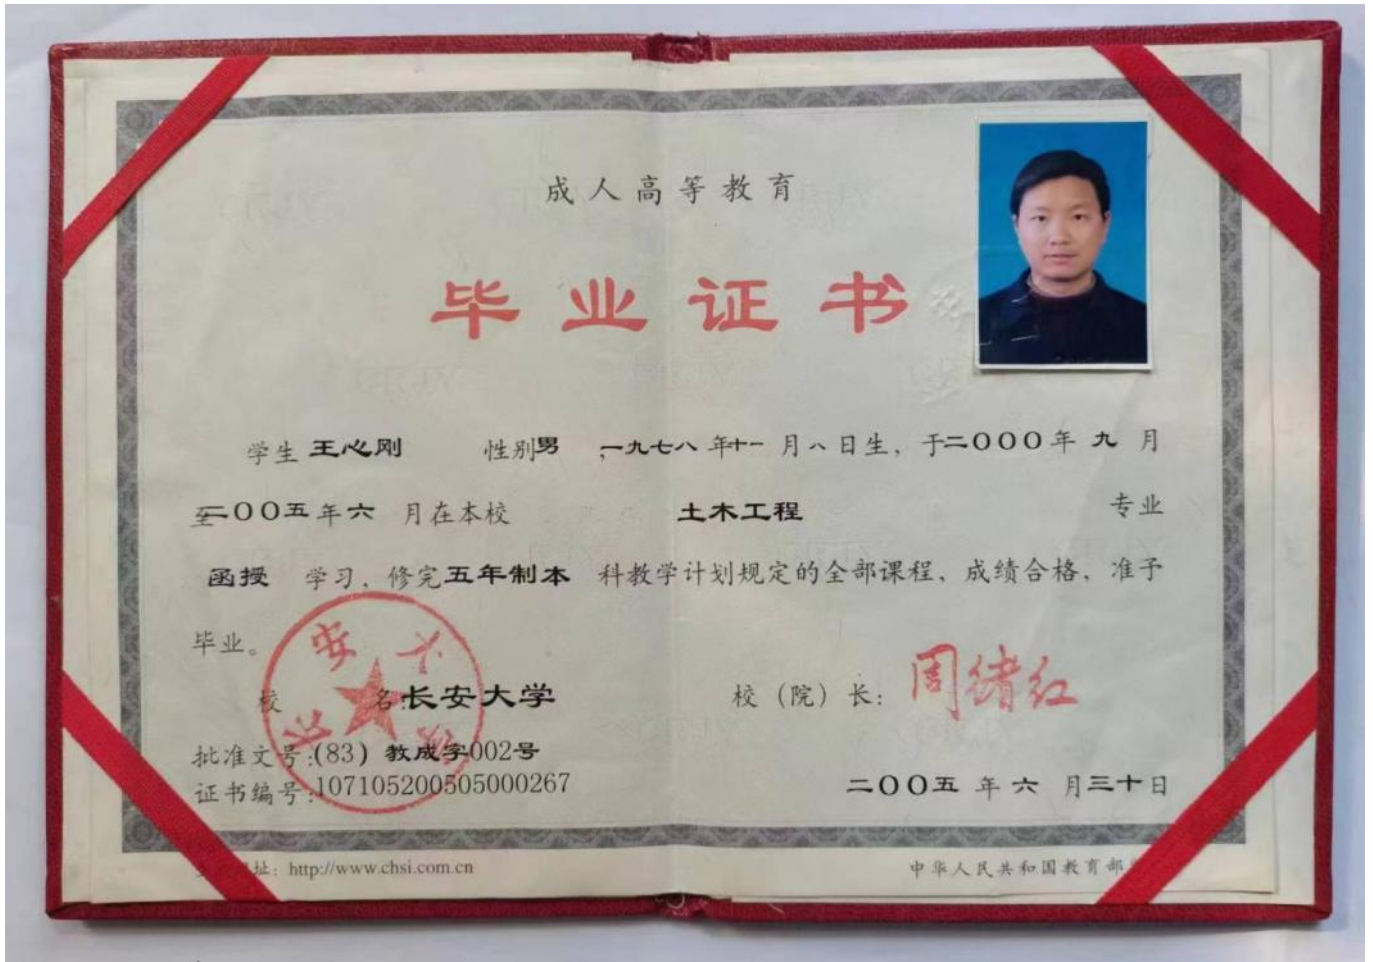 成人高等教育
毕业证书
学生 王心刚 性别 男 ,一九七八年十一月八日生，于二〇〇〇年九月
至二〇〇五年六月在本校 土木工程 专业
函授 学习，修完五年制本科教学计划规定的全部课程，成绩合格，准予
毕业。
校 名:长安大学 校（院）长：周绪红
批准文号:(83）教成字002号
证书编号:107105200505000267 二〇〇五年六月三十日
址：http://www.chsi.com.cn 中华人民共和国教育部